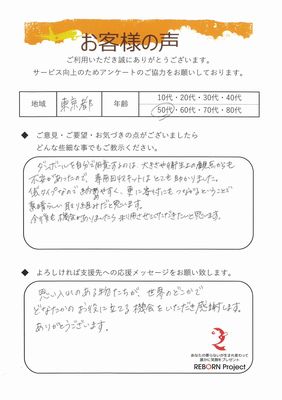 お客様の声
ご利用いただき誠にありがとうございます。
サービス向上のためアンケートのご協力をお願いしております。
地域 東京都 年齢 10代・20代・30代・40代
50代・60代・70代・80代
◆ ご意見・ご要望・お気づきの点がございましたら
どんな些細な事でもご教示ください。
ダンボールを自分で用意するのは、大きさや衛生上の観点からも
不安があったので、専用回収キットはとても助かりました。
低タイプなので き納めやすく、更に寄付にもつながるということで
素晴らしい取り組みだと思います。
今後も機会がありましたら利用させていただきたいと思います。
◆ よろしければ支援先への応援メッセージをお願い致します。
思い入れのある物たちが、世界のどこかで
どなたかのお役に立てる機会をいただき感謝します。
ありがとうございます。
あなたの要らないが生まれ変わって
誰かに笑顔をプレゼント
REBORN Project